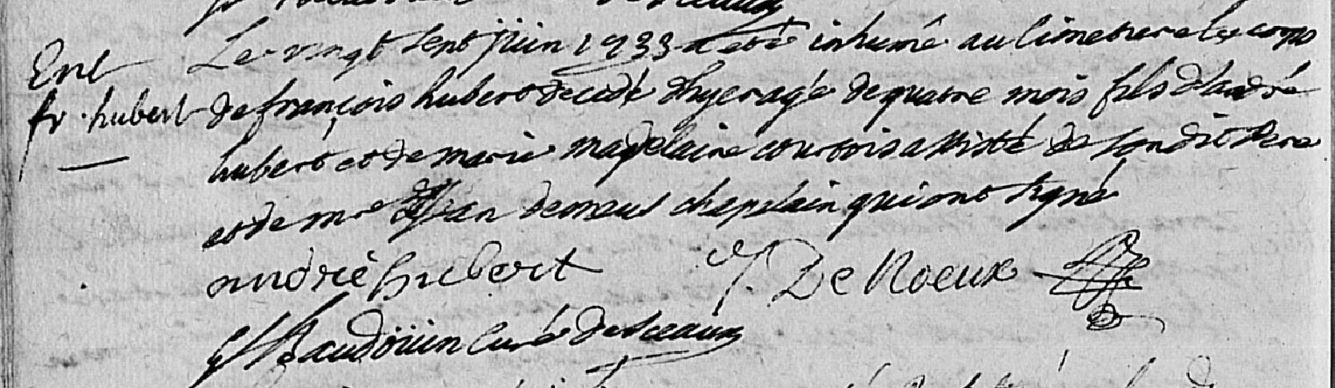 Ent
fr. hubert
Le vingt sept juin 1733 a eté inhumé au cimetiere le corps
de françois hubert decedé d'hyer agé de quatre mois fils d'andré
hubert et de marie magdelaine courtois assisté de son dit Pere
et de mre Jean chapelain qui ont signé
andrié hubert J. De Noeux
Baudoüin Curé de Sceaux